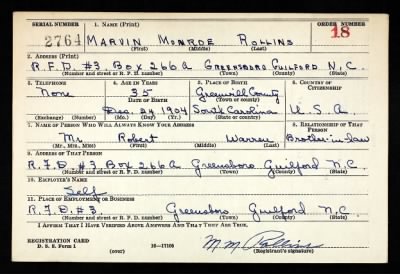 SERIAL NUMBER 1. NAME (Print) ORDER NUMBER
2764 MARVIN MONROE ROLLINS 18
(First) (Middle) (Last)
2. ADDRESS (Print)
R.F.D. #3. BOX 266A GREENSBORO GUILFORD N.C.
(Number and street or R. F. D. number) (Town) (County) (State)
3. TELEPHONE 4. AGE IN YEARS 5. PLACE OF BIRTH 6. COUNTRY OF CITIZENSHIP
None 35 Greenvill County
DATE OF BIRTH (Town or county)
Dec. 24 1904 South Carolina U.S.A.
(Exchange) (Number) (Mo.) (Day) (Yr.) (State or country)
7. NAME OF PERSON WHO WILL ALWAYS KNOW YOUR ADDRESS 8. RELATIONSHIP OF THAT PERSON
Mr. Robert Warren Brother-in-law
(Mr., Mrs., Miss) (First) (Middle) (Last)
9. ADDRESS OF THAT PERSON
R.F.D. #3 Box 266A Greensboro Guilford N.C.
(Number and street or R. F. D. number) (Town) (County) (State)
10. EMPLOYER'S NAME
Self
11. PLACE OF EMPLOYMENT OR BUSINESS
R.F.D. #3. Greensboro Guilford N.C.
(Number and street or R. F. D. number) (Town) (County) (State)
I AFFIRM THAT I HAVE VERIFIED ABOVE ANSWERS AND THAT THEY ARE TRUE.
REGISTRATION CARD
D. S. S. Form 1 16—17105 M.M. Rollins
(over) (Registrant's signature)